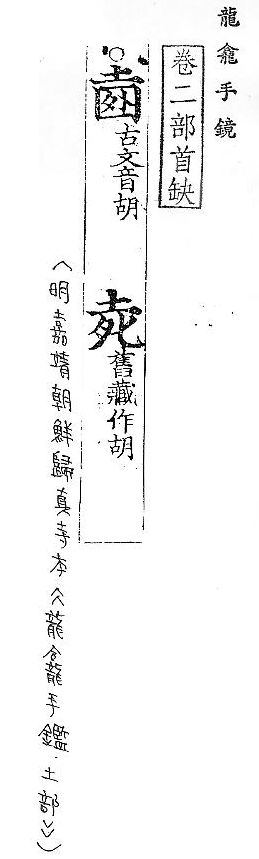 龍龕手鏡
卷二部首缺
古文音胡
舊藏作胡
(明嘉靖朝鮮歸真寺本《龍龕手鑑·土部》)